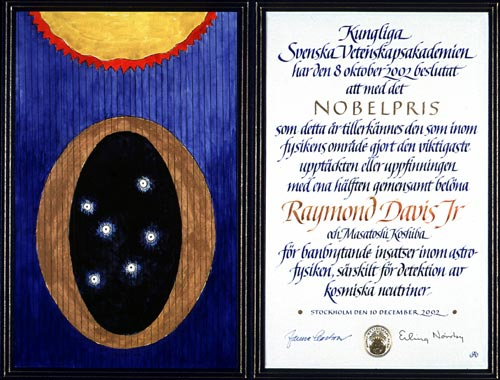 Kungliga
Svenska Vetenskapsakademien
har den 8 oktober 2002 beslutat
att med det
NOBELPRIS
som detta år tillerkännes den som inom
fysikens område gjort den viktigaste
upptäckten eller uppfinningen
med ena hälften gemensamt belöna
Raymond Davis Jr
och Masatoshi Koshiba
för banbrytande insatser inom astro-
fysiken, särskilt för detektion av
kosmiska neutriner
STOCKHOLM DEN 10 DECEMBER 2002
Erling Norrby